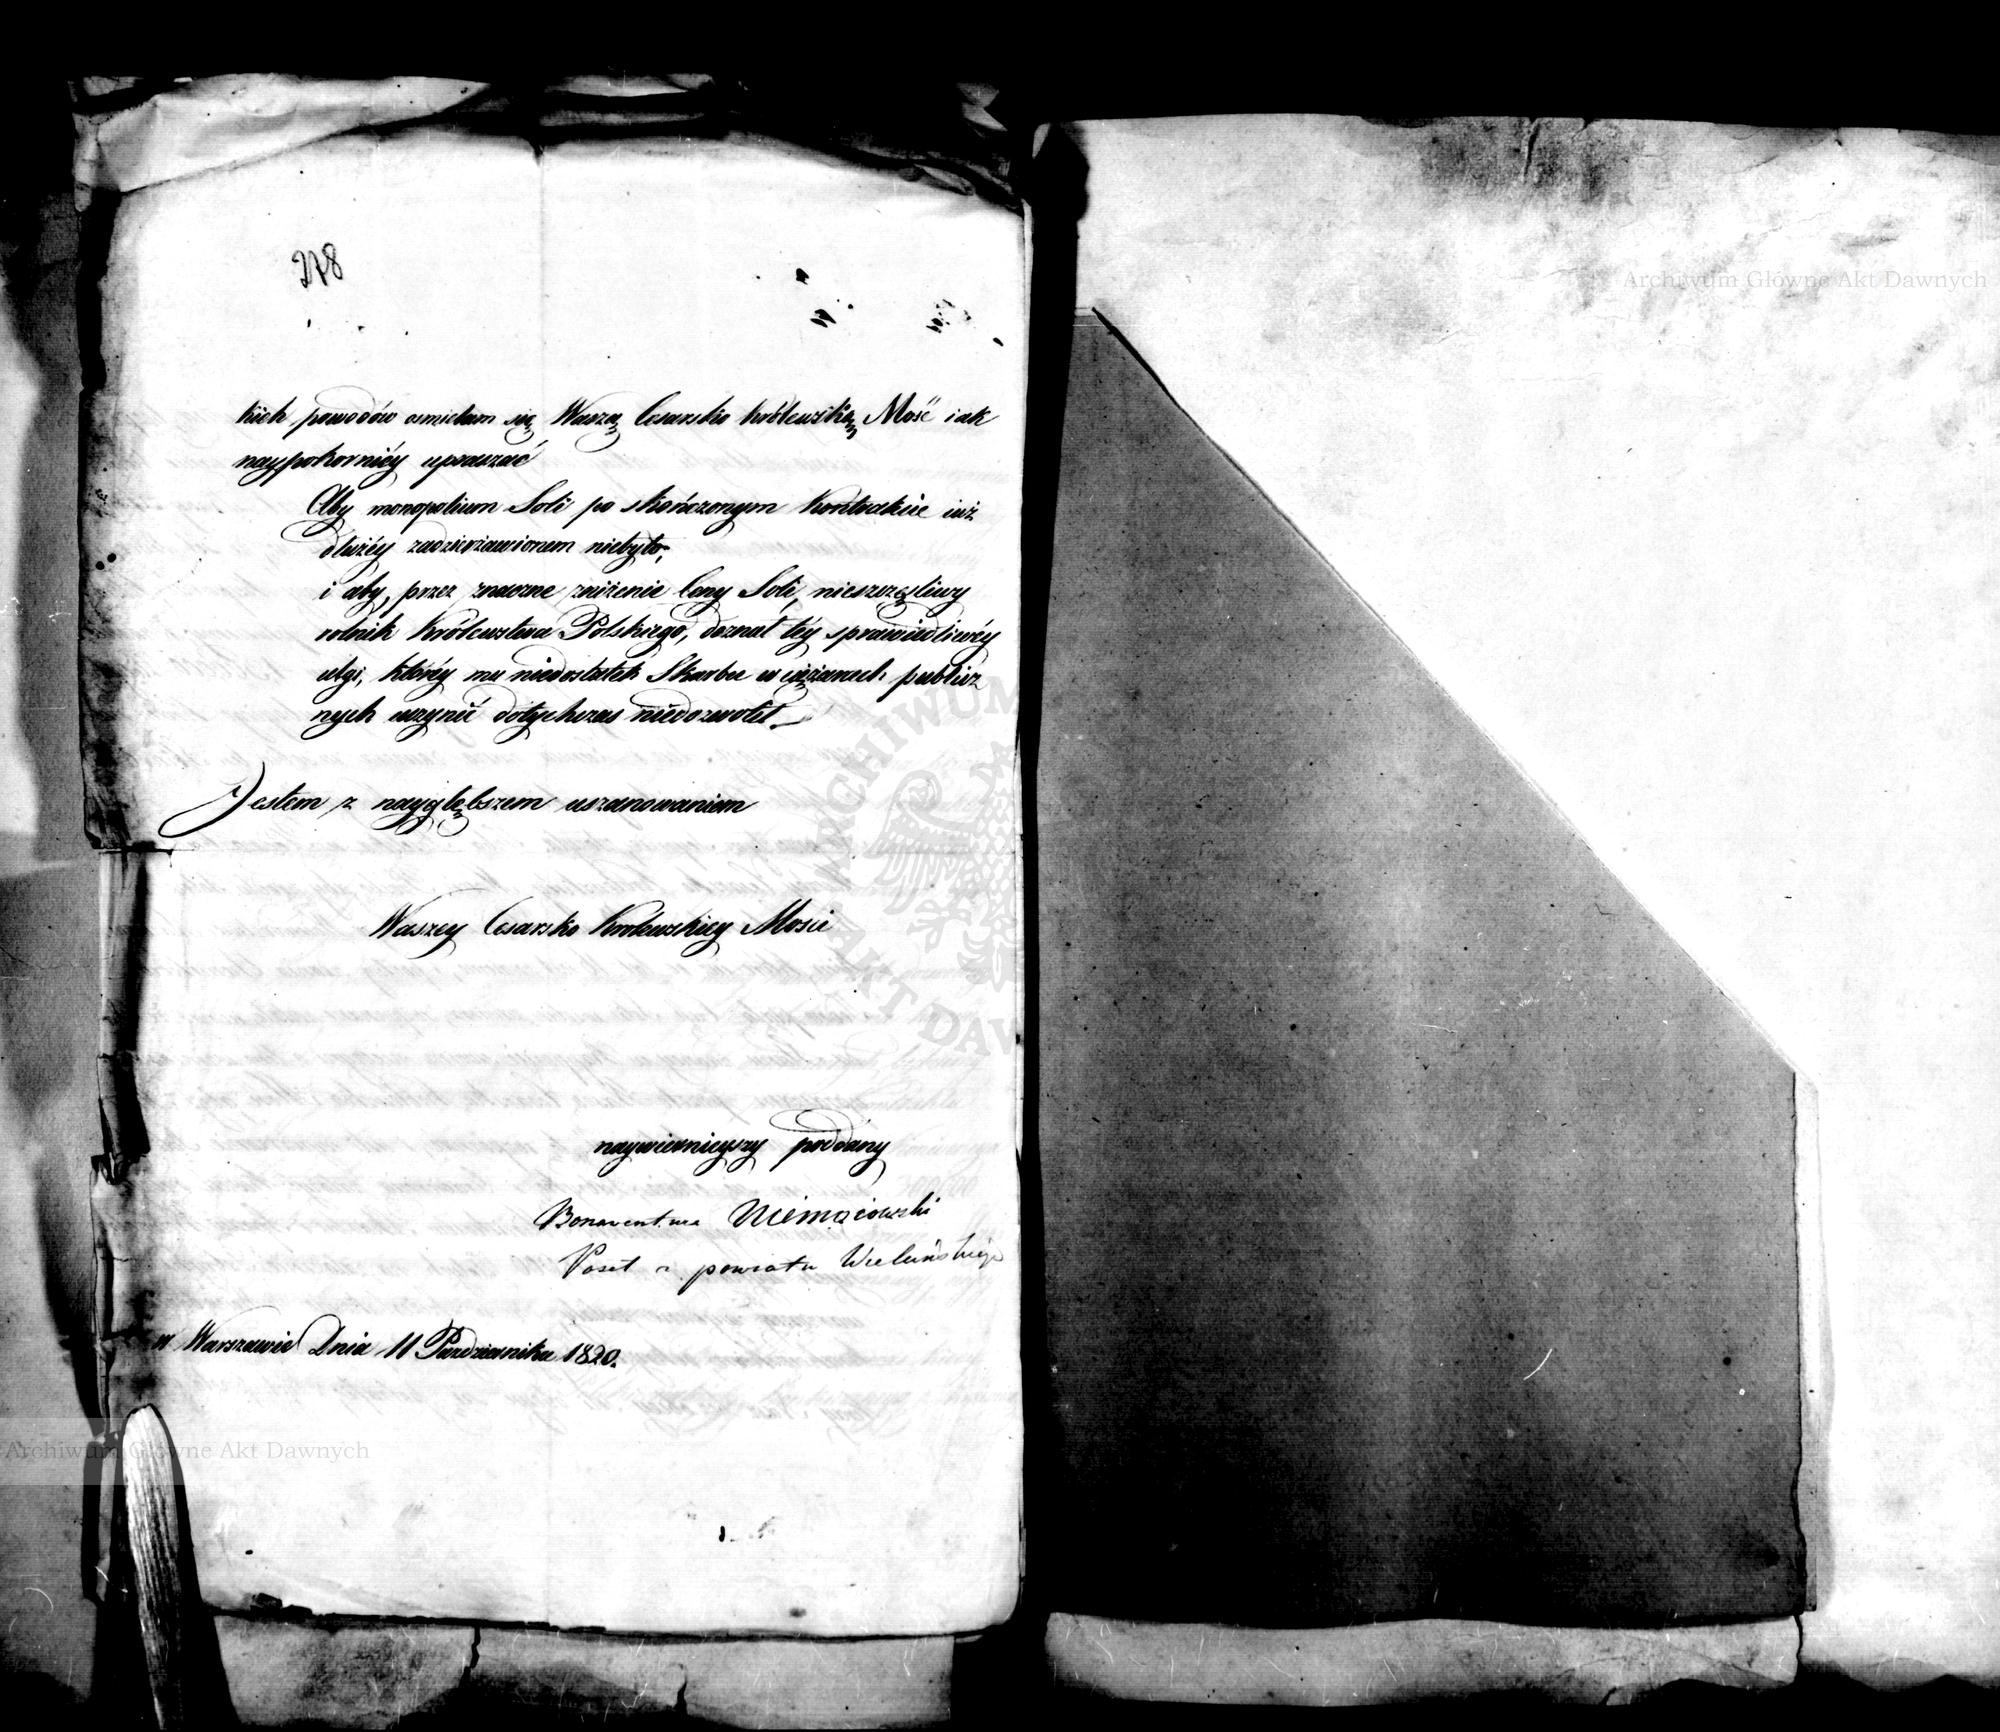 278
kich powodów osmielam się Waszą Cesarsko Królewską Mość iak
naypokorniéy upraszać
Aby monopolium Soli po skończonym Kontrakcie iuż
dłużéy zadzierżawionem niebyło;
i aby, przez znaczne zniżenie Ceny Soli, nieszczęśliwy
rolnik Królewstwa Polskiego, doznał téy sprawiedliwéy
ulgi, któréy mu niedostatek Skarbu w ciężarach publicz
nych uczynić dotychczas niedozwolił.
Jestem z naygłębszem uszanowaniem
Waszey Cesarsko Krolewskiey Mosci
naywiernieyszy poddany
Bonawentura Niemoiowski
Poseł z powiatu Wieluńskiego
w Warszawie Dnia 11 Pazdziernika 1820.
Archiwum Główne Akt Dawnych
Archiwum Główne Akt Dawnych